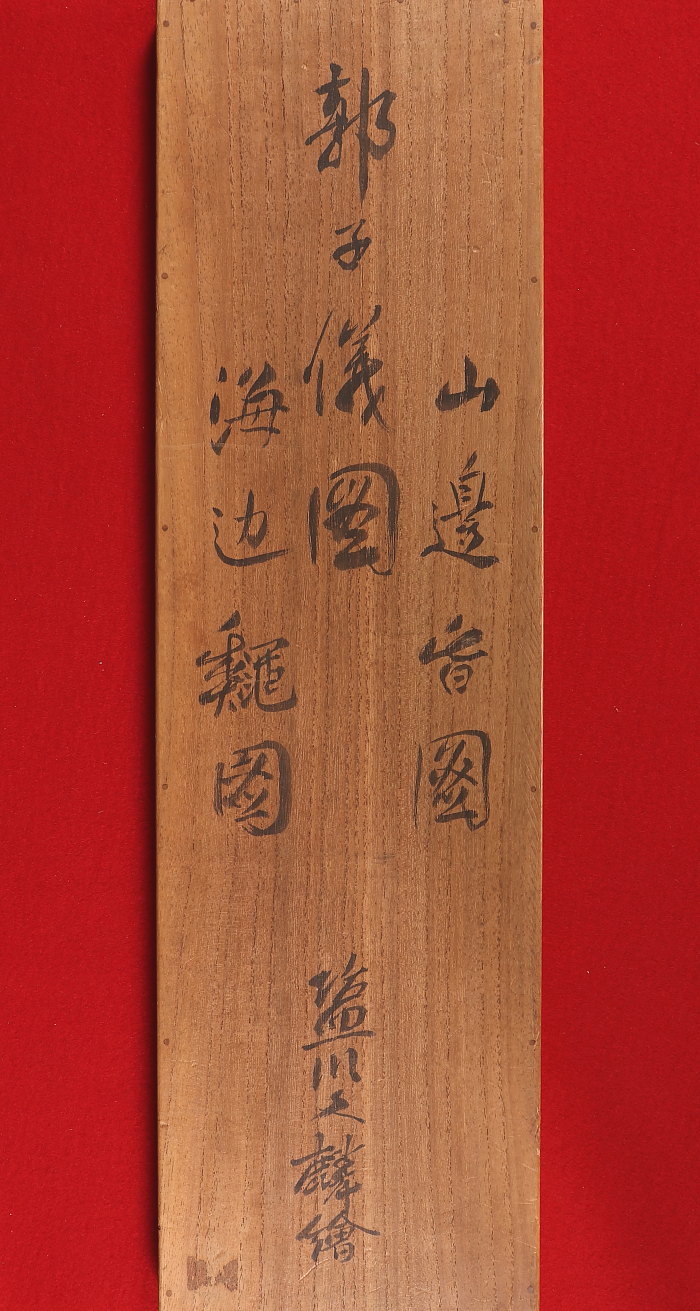 山邊旾圖
郭子儀圖
海边龝圖
塩川文麟繪